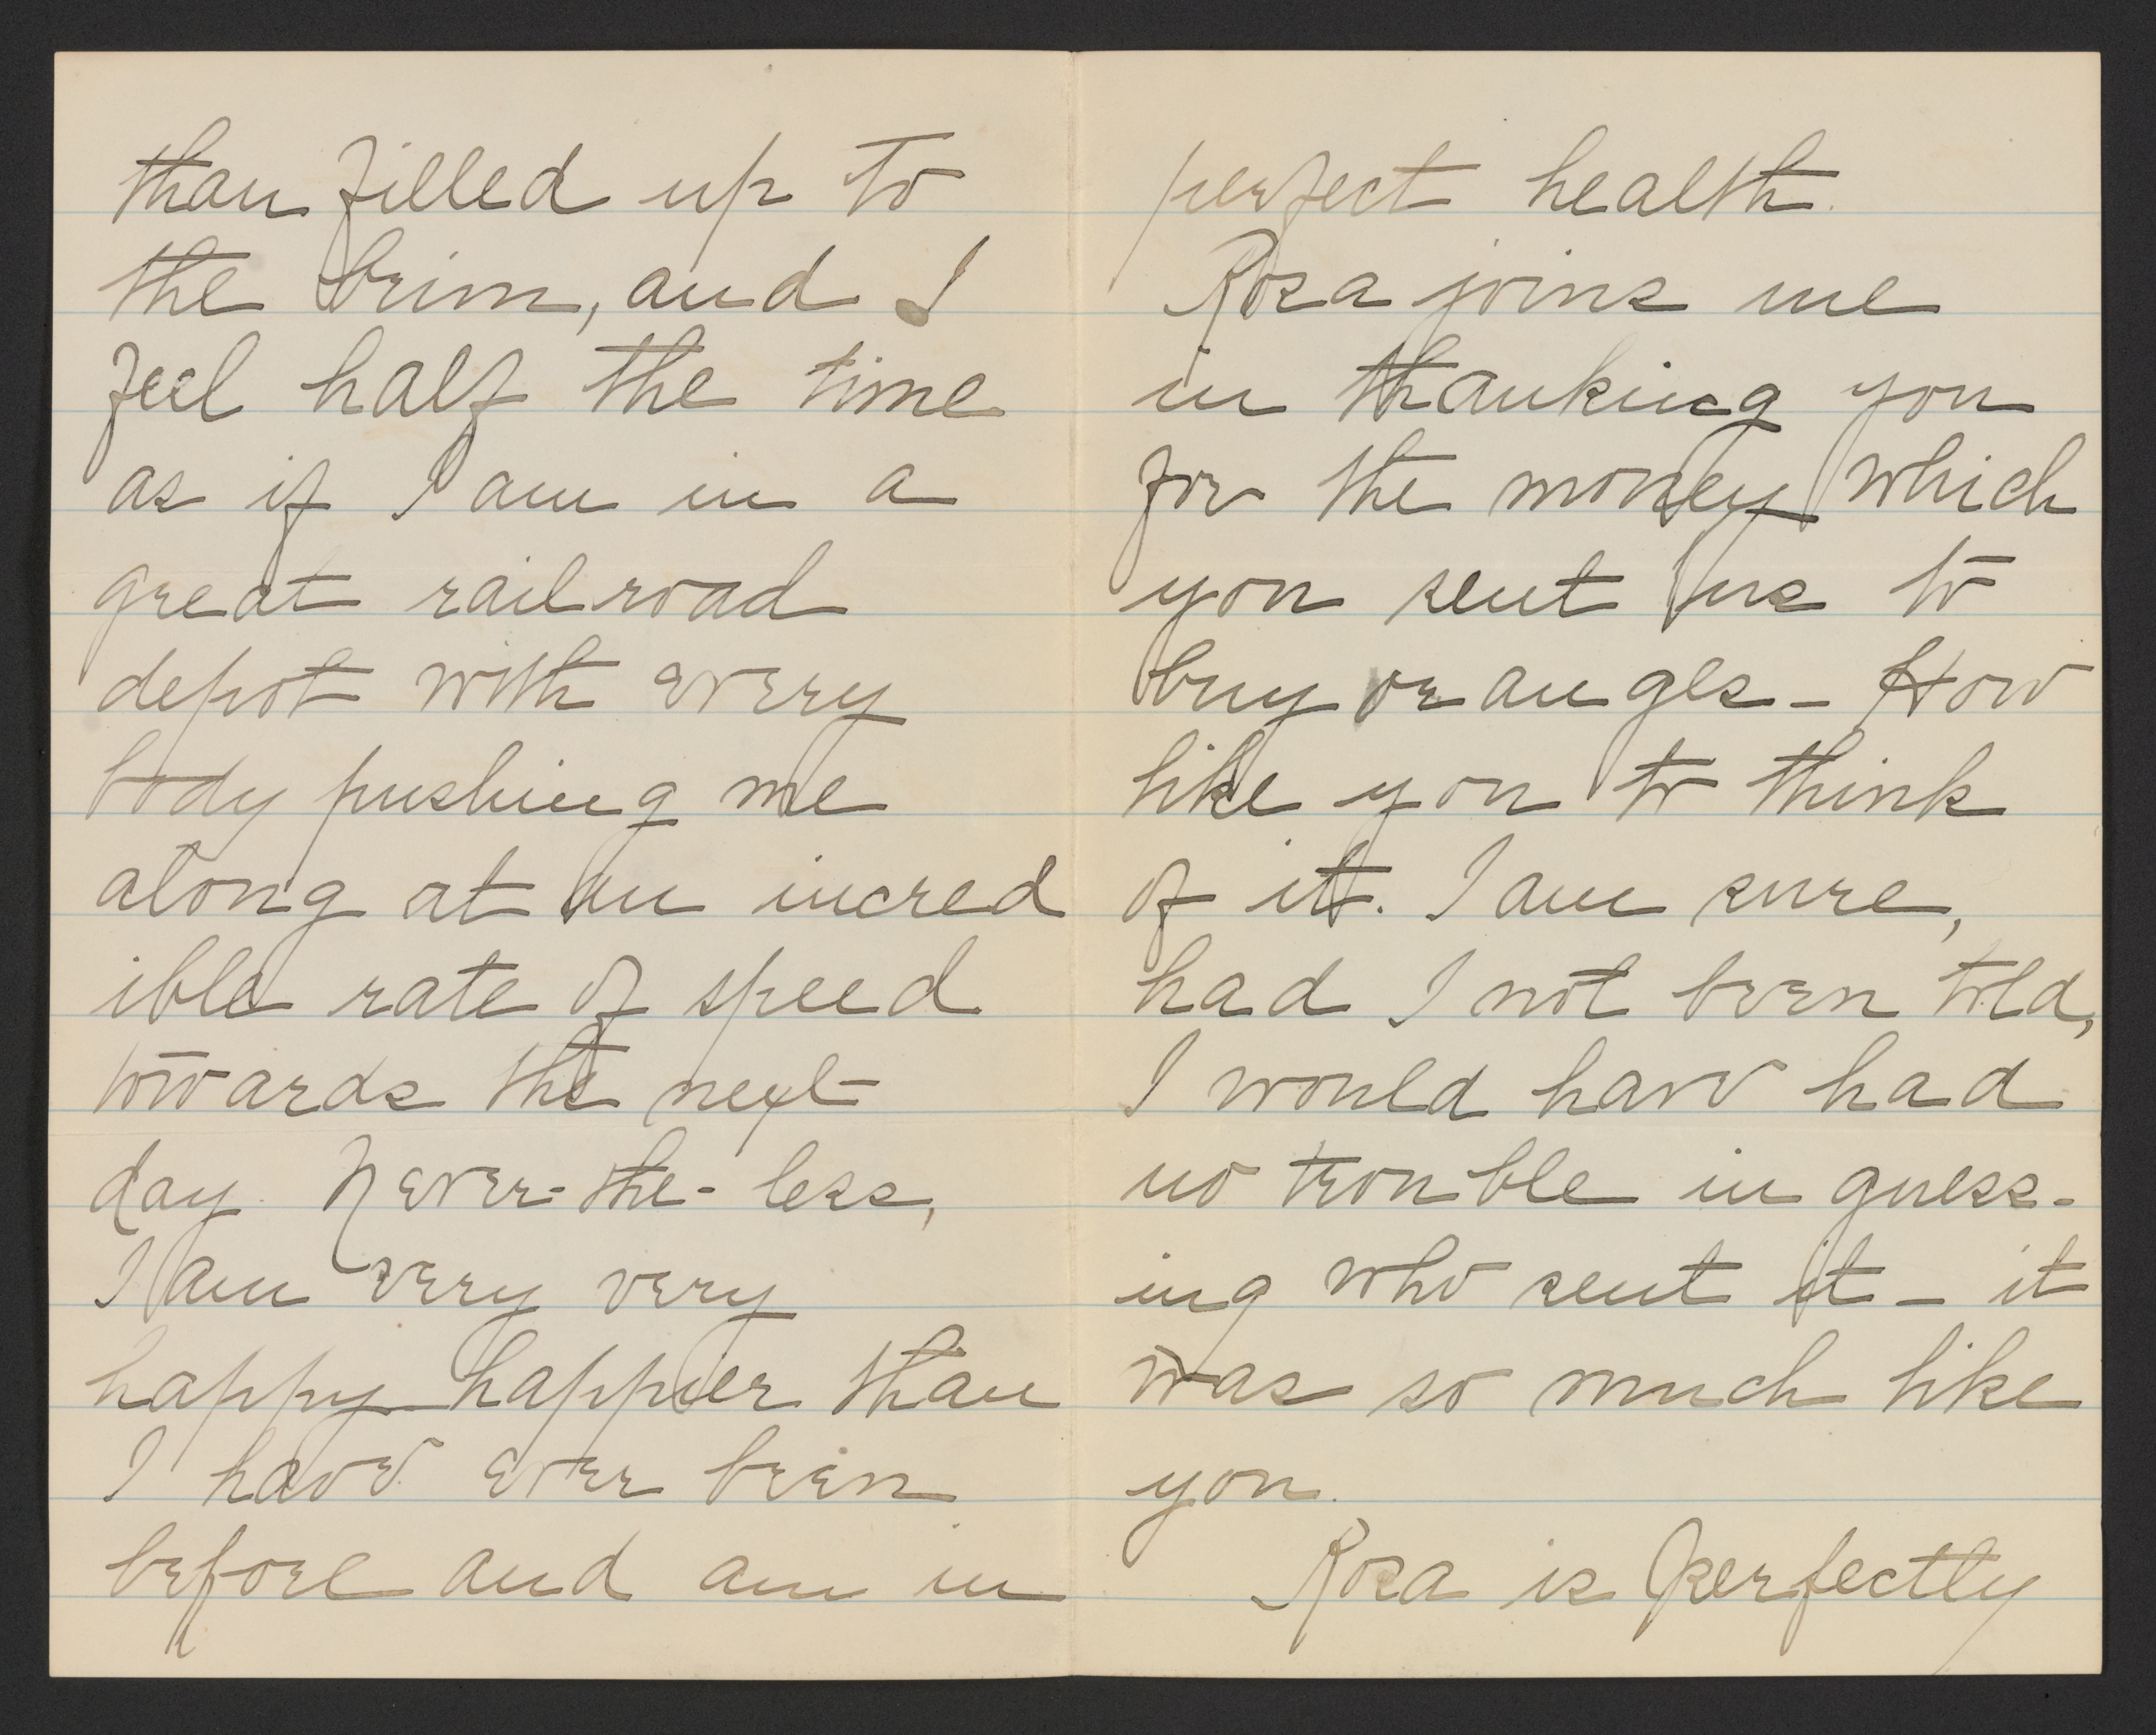 than filled up to
the brim, and I
feel half the time
as if I am in a
great railroad
depot with every
body pushing me
along at an incred
ible rate of speed
towards the next
day. Never-the-less,
I am very very
happy - happier than
I have ever been
before and am in
perfect health.
Rosa joins me
in thanking you
for the money which
you sent us to
buy oranges - How
like you to think
of it. I am sure,
had I not been told,
I would have had
no trouble in guess-
ing who sent it - it
was so much like
you.
Rosa is perfectly